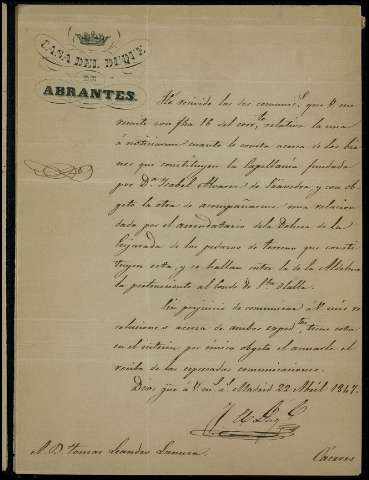 CASA DEL DUQUE
DE
ABRANTES.
He recivido las dos comunic.s que V. me
remite con fha 16 del corr.te, relativa la una
á noticiarme cuanto le consta acerca de los bie
nes que constituyen la Capellanía fundada
por D.a Isabel Alvarez de Saavedra; y con ob
geto la otra de acompañarme una relacion
dada por el arrendatario de la Dehesa de la
de los pedazos de terreno que consti
tuyen esta, y se hallan entre la de la Aldehue
la perteneciente al Conde de
Sin perjuicio de comunicar á V. mis re
soluciones acerca de ambos esped.tes, tiene esta
en el interin por único objeto el anunciarle el
recibo de las espresadas comunicaciones.
Dios gue á V. m.s a.s Madrid 22 Abril 1847.
El Duq
S. D. Tomas Leandro
Cáceres